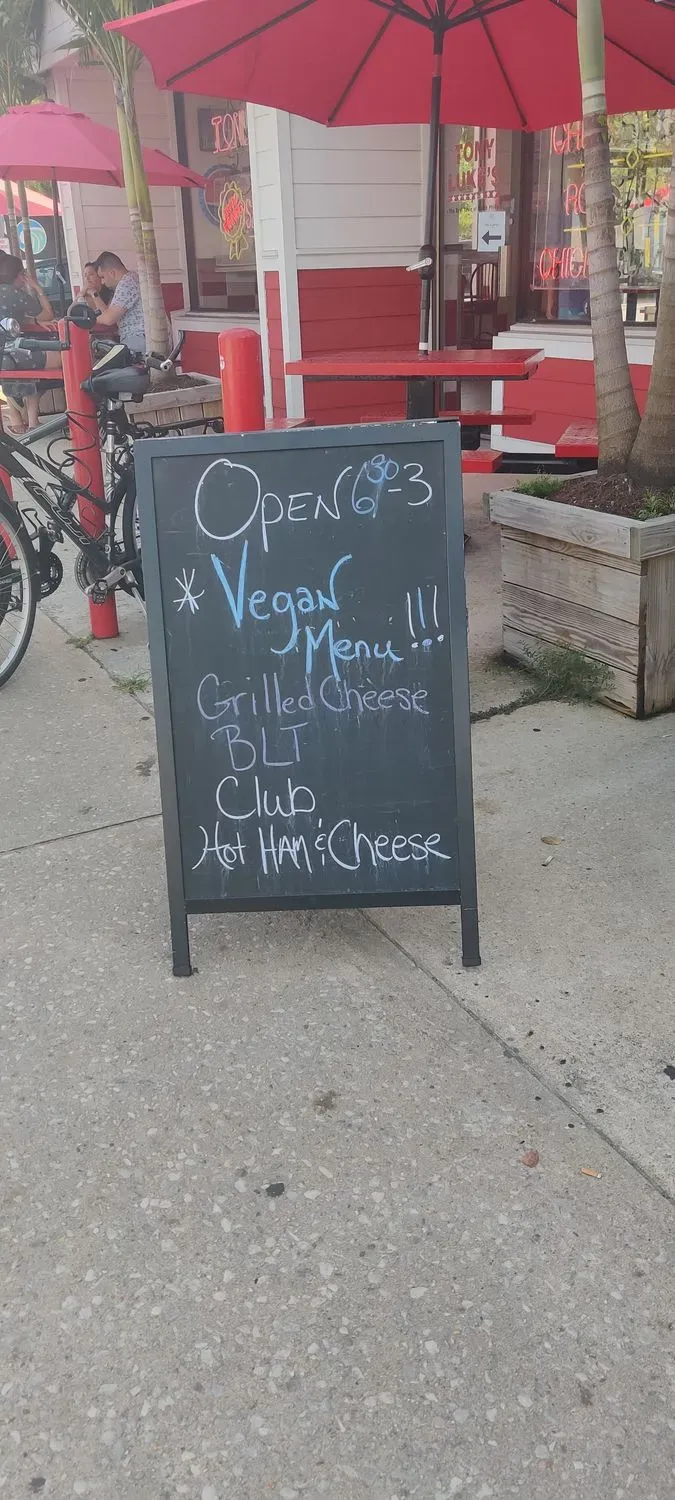 OPEN 6³⁰-3
* Vegan
Menu !!!
Grilled Cheese
BLT
Club
Hot HAM & Cheese
TONY
LUKE'S